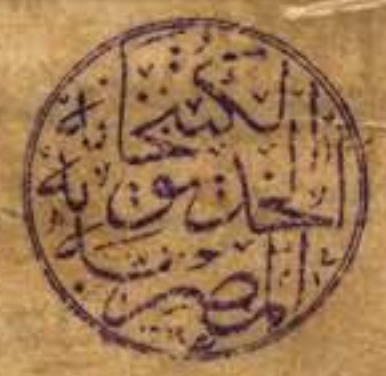 الكتبخانه
الخديويه
المصريه